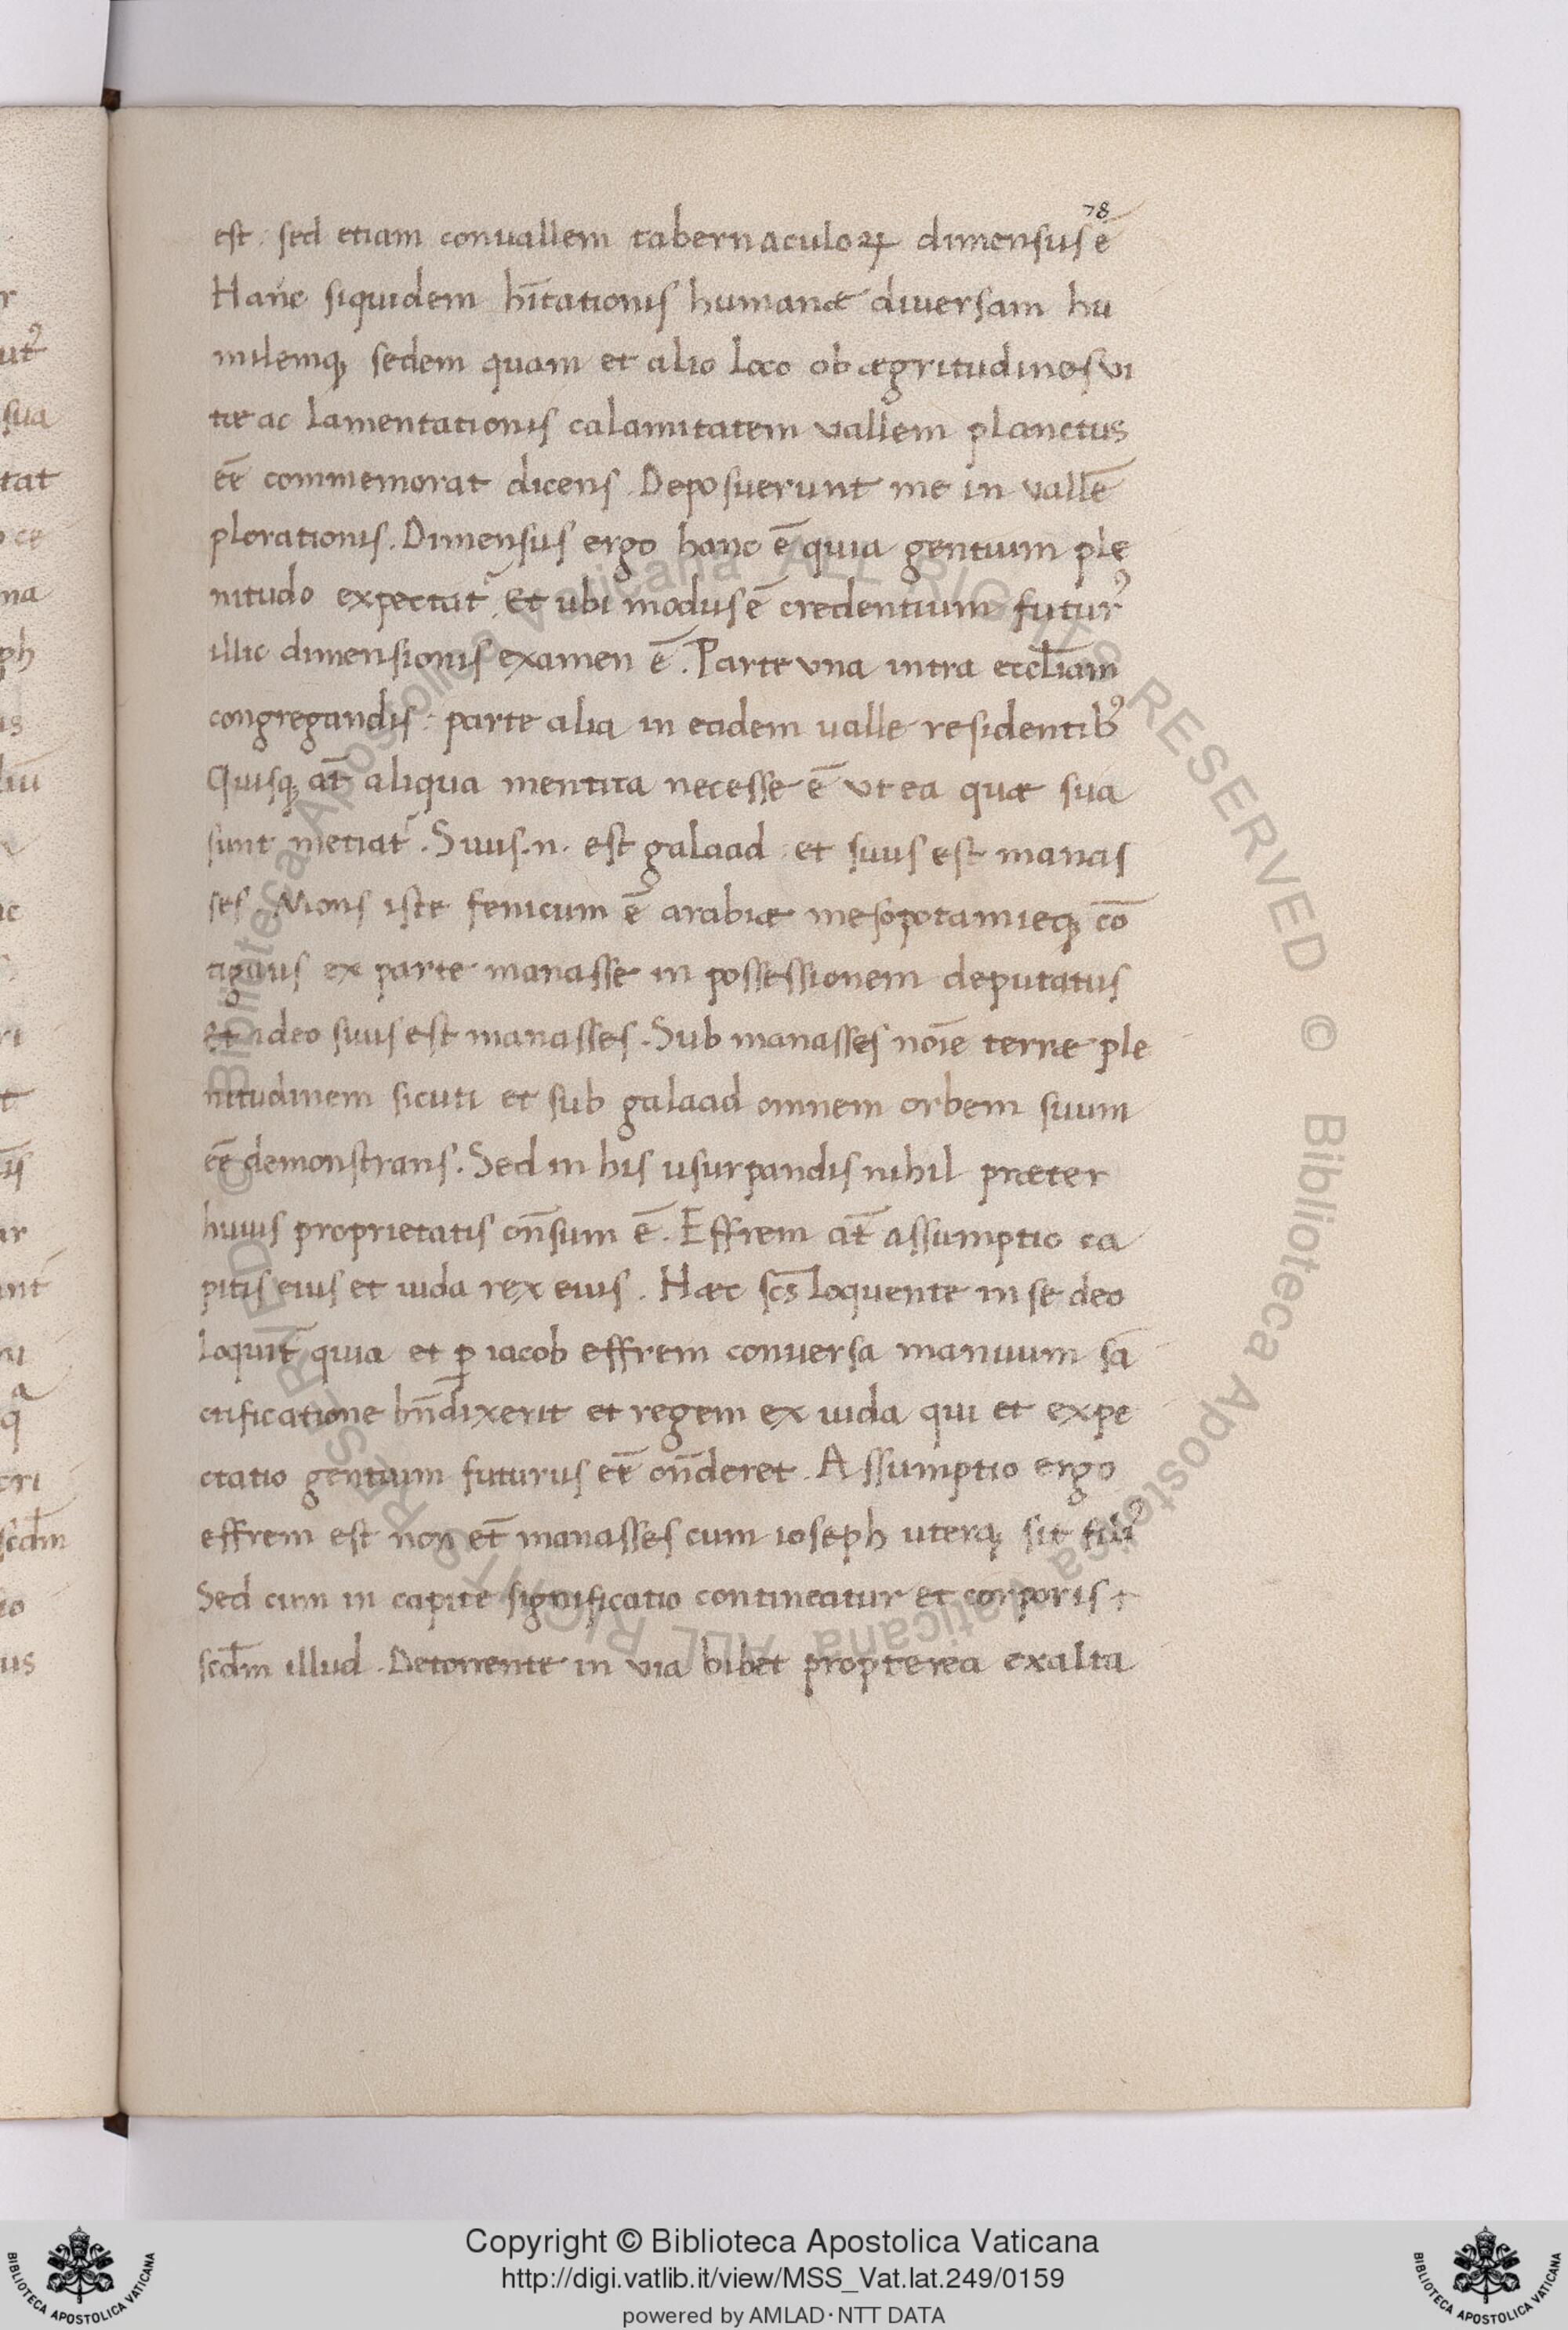 78
est. sed etiam conuallem tabernaculoꝝ dimensus ē
Hanc siquidem hītationis humanæ diuersam hu
milemq; sedem quam et alio loco ob ægritudines vi
tæ ac lamentationis calamitatem vallem planctus
eē commemorat dicens. Deposuerunt me in vallē
plorationis. Dimensus ergo hanc ē quia gentium ple
nitudo expectat᷑. Et ubi modus ē credentium futurꝰ
illic dimensionis examen ē. Parte vna intra eccl̄iam
congregandis: parte alia in eadem ualle residentibꝰ
Quisq; at̄ aliqua mentita necesse ē vt ea quæ sua
sunt metiat᷑. Suus .n. est galaad: et suus est manas
ses. Mons iste fenicum ē arabiæ mesopotamieq; cō
tiguus ex parte manasse in possessionem deputatus
et ideo suus est manasses. Sub manasses noīe terræ ple
nitudinem sicuti et sub galaad omnem orbem suum
eē demonstrans. Sed in his usurpandis nihil præter
huius proprietatis on̄sum ē. Effrem at̄ assumptio ca
pitis eius et iuda rex eius. Hæc scs̄ loquente in se deo
loquit᷑ quia et ꝑ iacob effrem conuersa manuum sā
ctificatione bn̄dixerit et regem ex iuda qui et expe
ctatio gentium futurus eēt on̄deret. Assumptio ergo
effrem est non et̄ manasses cum ioseph uterq; sit filiꝰ
Sed cum in capite significatio contineatur et corporis
scd̄m illud. De torrente in via bibet propterea exalta
ut᷑
sua
tat
ce
na
ph
is
ac
ri
t
ar
ant
ni
ori
scd̄m
io
us
Biblioteca Apostolica Vaticana ALL RIGHTS RESERVED © Biblioteca Apostolica Vaticana ALL RIGHTS RESERVED ©
BIBLIOTECA APOSTOLICA VATICANA
Copyright © Biblioteca Apostolica Vaticana
http://digi.vatlib.it/view/MSS_Vat.lat.249/0159
powered by AMLAD·NTT DATA
BIBLIOTECA APOSTOLICA VATICANA